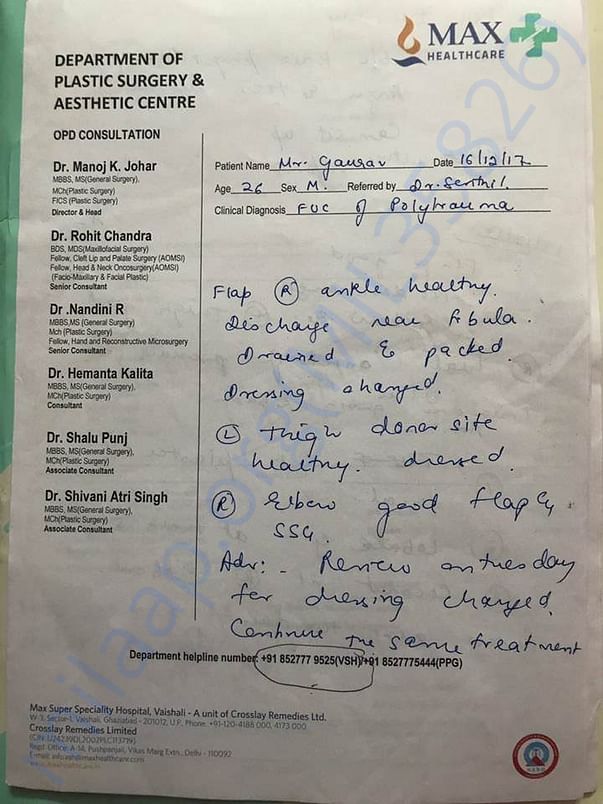 MAX
HEALTHCARE
DEPARTMENT OF
PLASTIC SURGERY &
AESTHETIC CENTRE
OPD CONSULTATION
Dr. Manoj K. Johar
MBBS, MS(General Surgery),
MCh(Plastic Surgery)
FICS (Plastic Surgery)
Director & Head
Dr. Rohit Chandra
BDS, MDS(Maxillofacial Surgery)
Fellow, Cleft Lip and Palate Surgery (AOMSI)
Fellow, Head & Neck Oncosurgery(AOMSI)
(Facio-Maxillary & Facial Plastic)
Senior Consultant
Dr .Nandini R
MBBS,MS (General Surgery)
Mch (Plastic Surgery)
Fellow, Hand and Reconstructive Microsurgery
Senior Consultant
Dr. Hemanta Kalita
MBBS, MS(General Surgery),
MCh(Plastic Surgery)
Consultant
Dr. Shalu Punj
MBBS, MS(General Surgery),
MCh(Plastic Surgery)
Associate Consultant
Dr. Shivani Atri Singh
MBBS, MS(General Surgery),
MCh(Plastic Surgery)
Associate Consultant
Patient Name Mr. Gaurav Date 16/12/17
Age 26 Sex M. Referred by Dr. Senthil.
Clinical Diagnosis FUC of Polytrauma
Flap (R) ankle healthy.
Discharge near fibula.
Drained & packed.
Dressing changed.
(L) thigh donor site
healthy. dressed.
(R) Elbow good flap &
SSG.
Adv: - Review on tuesday
for dressing changed.
Continue the same treatment
Department helpline number: +91 852777 9525(VSH)/+91 8527775444(PPG)
Max Super Speciality Hospital, Vaishali - A unit of Crosslay Remedies Ltd.
W-3, Sector-1, Vaishali, Ghaziabad - 201012, U.P., Phone: +91-120-4188 000, 4173 000
Crosslay Remedies Limited
(CIN: U24239DL2002PLC113719)
Regd. Office: A-14, Pushpanjali, Vikas Marg Extn., Delhi - 110092